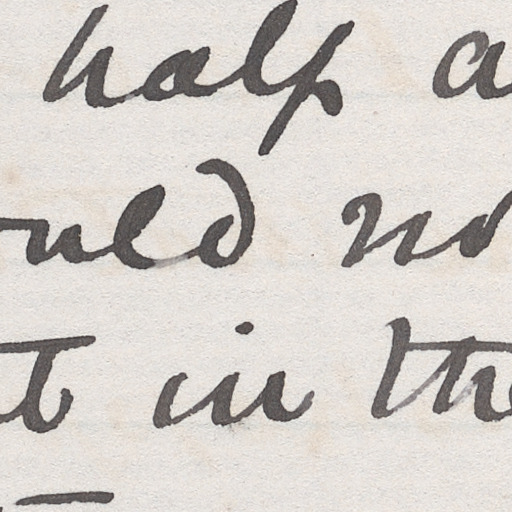 half a
ould no
t in the